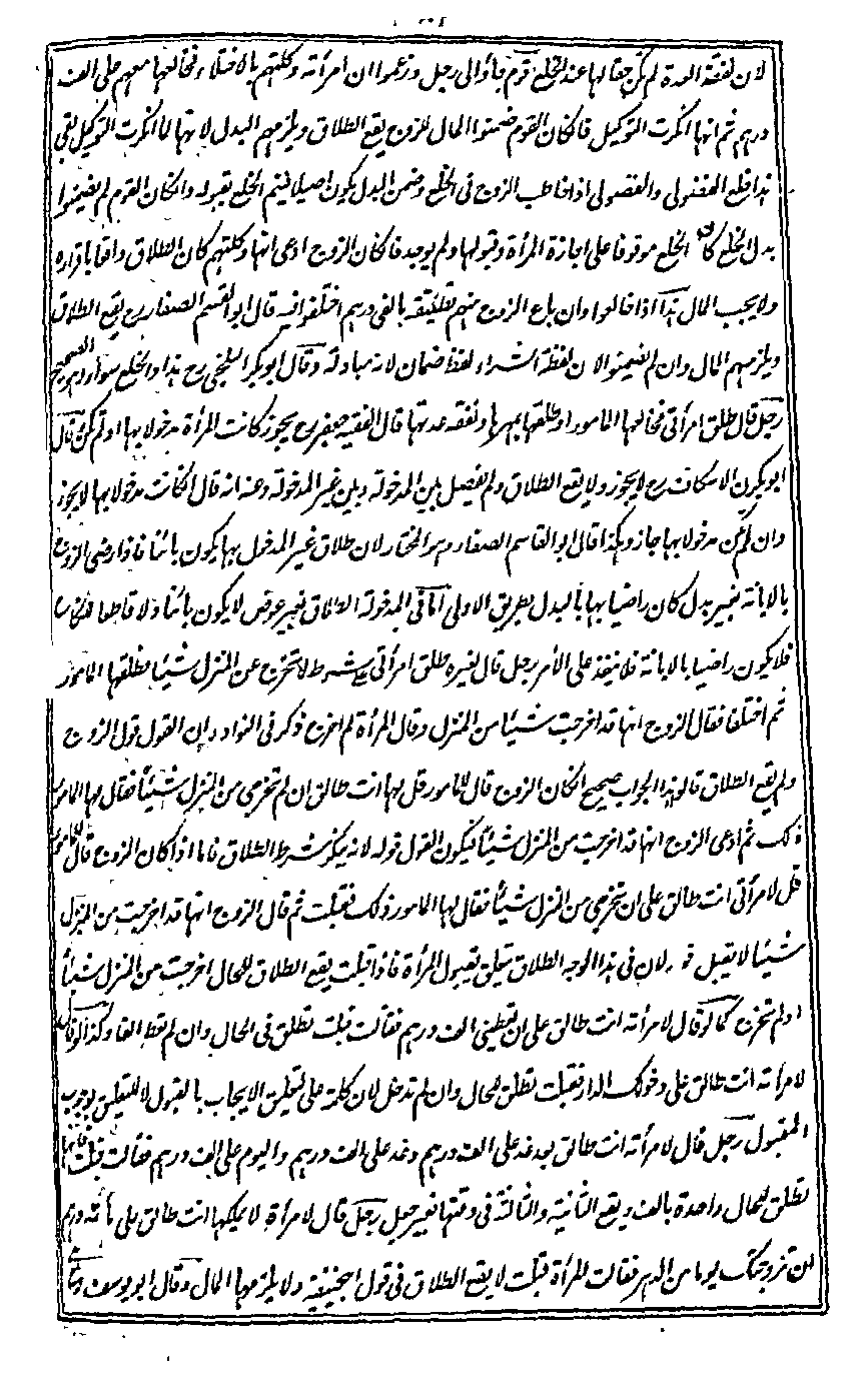 لان نفقة العدة لم تكن حقا لها عند الخلع قوم جاؤا الى رجل وزعموا ان امرأته وكلتهم بالاختلاع فخالعها معهم على الف
درهم ثم انها انكرت التوكيل فان كان القوم ضمنوا المال للزوج يقع الطلاق ويلزمهم البدل لانها لما انكرت التوكيل بقي
هذا خلع الفضولى والفضولى اذا خاطب الزوج فى الخلع وضمن البدل يكون اصيلا فيتم الخلع بقبوله وان كان القوم لم يضمنوا
بدل الخلع كان الخلع موقوفا على اجازة المرأة وقبولها ولم يوجد فان كان الزوج ادعى انها وكلتهم كان الطلاق واقعا باقراره
ولا يجب المال هذا اذا خالعوا وان باع الزوج منهم تطليقة بالفى درهم اختلفوا فيه قال ابو القسم الصفار رح يقع الطلاق
ويلزمهم المال وان لم يضمنوا لان لفظة الشراء لفظ ضمان لانه مبادلة وقال ابو بكر البلخى رح هذا والخلع سواء وهو الصحيح
رجل قال طلق امرأتى فخالعها المامور او طلقها بمهرها ونفقة عدتها قال الفقيه جعفر رح يجوز كانت المرأة مدخولا بها او لم تكن وقال
ابو بكر ن الاسكاف رح لا يجوز ولا يقع الطلاق ولم يفصل بين المدخولة وبين غير المدخولة وعنه انه قال ان كانت مدخولا بها لا يجوز
وان لم تكن مدخولا بها جاز وهكذا قال ابو القاسم الصفار وهو المختار لان طلاق غير المدخول بها يكون بائنا فاذا رضى الزوج
بالابانة بغير بدل كان راضيا بها بالبدل بطريق الاولى اما فى المدخولة الطلاق بغير عوض لا يكون بائنا ولا قاطعا للنكاح
فلا يكون راضيا بالابانة فلا ينفذ على الآمر رجل قال لغيره طلق امرأتى على شرط لا تخرج عن المنزل شيئا فطلقها المامور
ثم اختلفا فقال الزوج انها قد اخرجت شيئا من المنزل وقال المرأة لم اخرج ذكر فى النوادر ان القول قول الزوج
ولم يقع الطلاق قالوا هذا الجواب صحيح ان كان الزوج قال للمامور قل لها انت طالق ان لم تخرجى من المنزل شيئا فقال لها المامور
ذلك ثم ادعى الزوج انها قد اخرجت من المنزل شيئا فيكون القول قوله لانه ينكر شرط الطلاق فاما اذا كان الزوج قال للمامور
قل لامرأتى انت طالق على ان تخرجى من المنزل شيئا فقال لها المامور ذلك فقبلت ثم قال الزوج انها قد اخرجت من المنزل
شيئا لا يقبل قوله لان فى هذا الوجه الطلاق يتعلق بقبول المرأة فاذا قبلت يقع الطلاق للحال اخرجت من المنزل شيئا
او لم تخرج كما لو قال لامرأته انت طالق على ان تعطينى الف درهم فقالت قبلت تطلق فى الحال وان لم تعط الفا وكذا لو قال
لامرأته انت طالق على دخولك الدار فقبلت تطلق للحال وان لم تدخل لان كلمة على لتعليق الايجاب بالقبول لا للتعليق بوجوب
المقبول رجل قال لامرأته انت طالق بعد غد على الف درهم وغدا على الف درهم واليوم على الف درهم فقالت قبلت فانها
تطلق للحال واحدة بالف ويقع الثانية والثالثة فى وقتها بغير جعل رجل قال لامرأة لا يملكها انت طالق على مائة درهم
ان تزوجتك يوما من الدهر فقالت المرأة قبلت لا يقع الطلاق فى قول ابيحنيفة ولا يلزمها المال وقال ابو يوسف رح